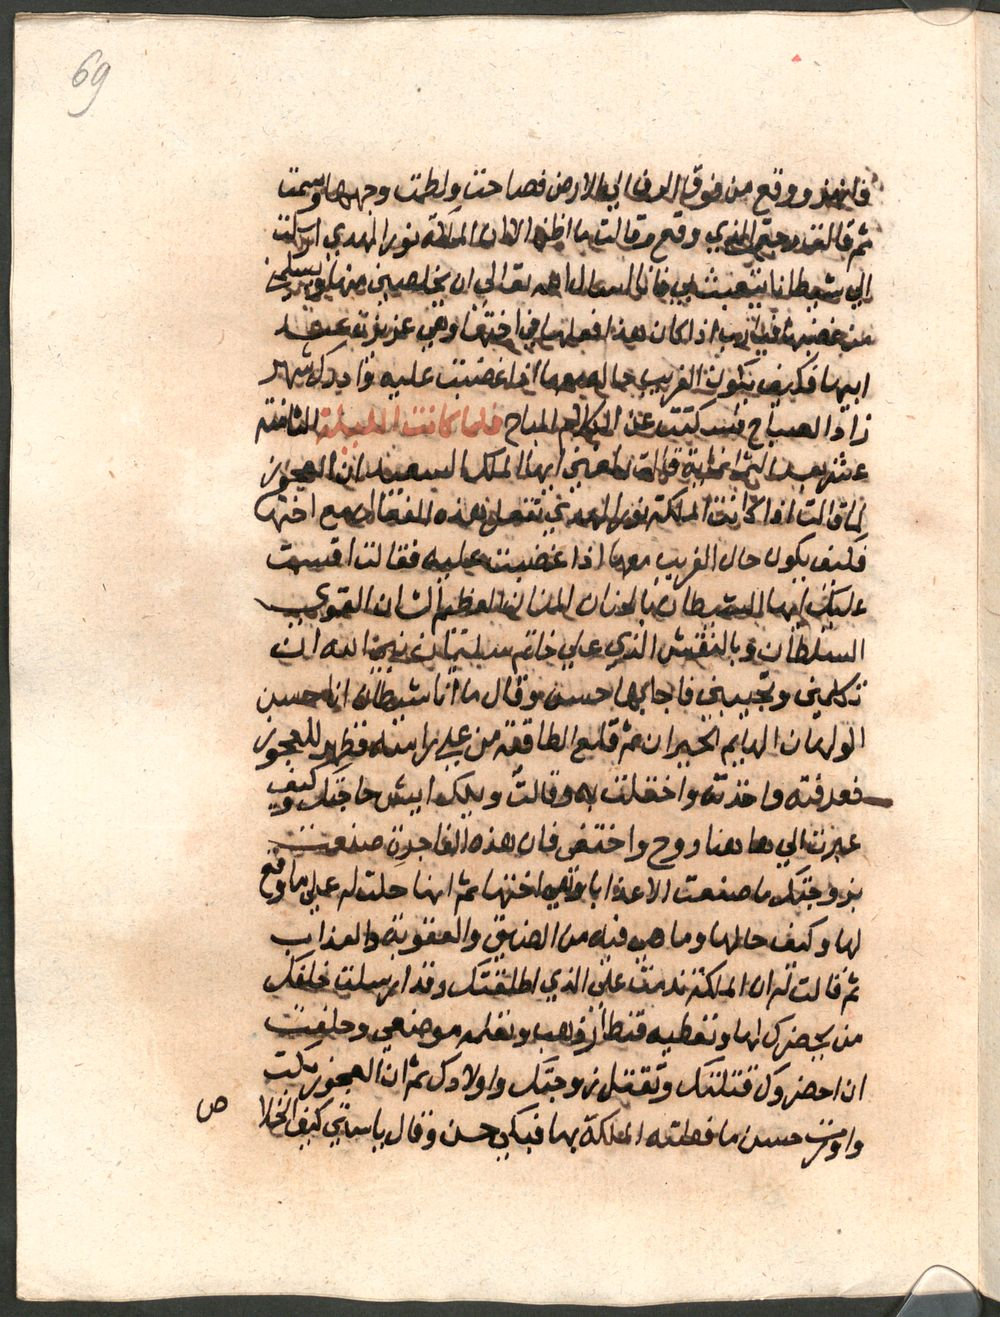 69
فانهز ووقع من فوق الرف الي الارض فصاحت ولطمت وجهها وسمت
ثم قالت رجع الذي وقع وقالت ما اظن الا ان الملكة نور الهدي ارسلت
الي شيطانا يتعبث بي فانا اسال الله تعالي ان يخلصني منها ويسلمني
من غضبها فيا رب اذا كان هذا فعلها في اختها وهي عزيزة عند
ابيها فكيف يكون الغريب حاله معها اذا غضبت عليه وادرك شهر
زاد الصباح فسكتت عن الكلام المباح فلما كانت الليلة الثانية
عشر بعد الثمانماية قالت بلغني ايها الملك السعيد ان العجوز
لما قالت اذا كانت الملكة نور الهدي تفعل هذه الفعال مع اختها
فكيف يكون حال الغريب معها اذا غضبت عليه فقالت اقسمت
عليك ايها الشيطان بالحنان المنان العظيم الشان القوي
السلطان وبالنقش الذي علي خاتم سليمان نبي الله ان
تكلمني وتجيبني فاجابها حسن وقال ما انا شيطان انا حسن
الولهان الهايم الحيران ثم قلع الطاقية من علي راسه فظهر للعجوز
فعرفته واخذته واختلت به وقالت ويلك ايش حاجتك وكيف
عبرت الي هاهنا روح واختفي فان هذه الفاجرة صنعت
بزوجتك ما صنعت الاعذابا وهي اختها ثم انها حكت له علي ما وقع
لها وكيف حالها وما هي فيه من الضيق والعقوبة والعذاب
ثم قالت له ان الملكة ندمت علي الذي اطلقتك وقد ارسلت خلفك
من يحضرك لها وتعطيه قنطار ذهب وتقلمه موضعي وحلفت
ان احضروك قتلتك وتقتل زوجتك واولادك ثم ان العجوز بكت
واورت حسن ما فعلته الملكة بها فبكي حسن وقال يا ستي كيف الخلا
ص